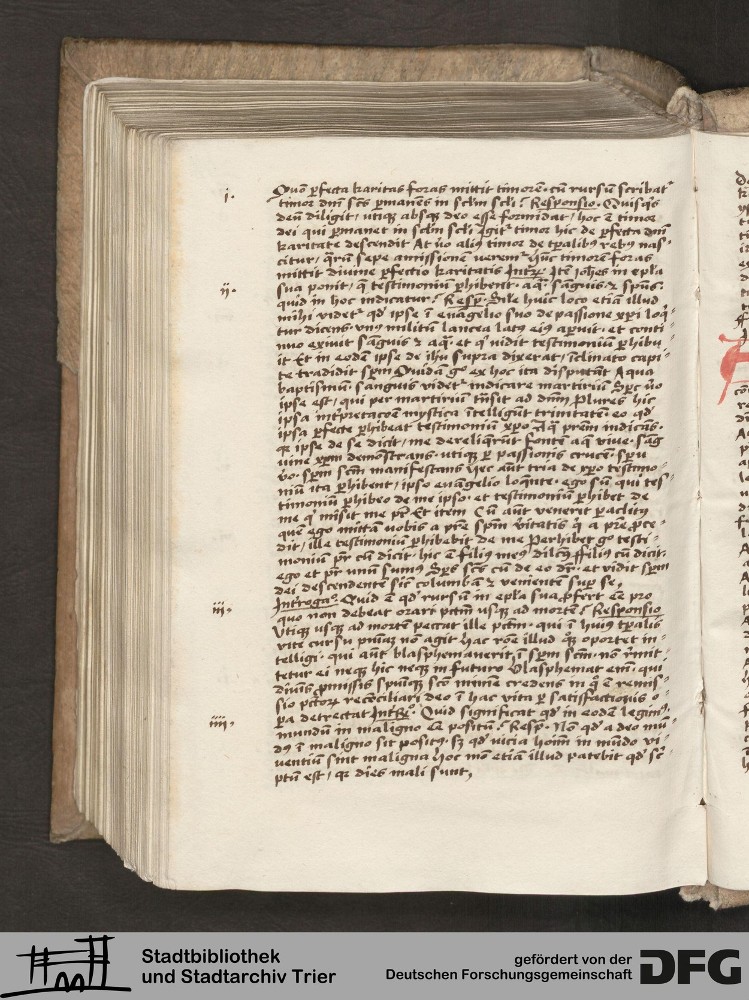 i.
Quō ꝑfecta karitas foras mittit timorē· cū rursū scribat᷑
timor dn̄i scūs ꝑmanēs in sclm̄ scli? Responsio· Quisqꝫ
deū diligit, utiqꝫ absqꝫ deo esse formidat, hoc ē timor
dei qui ꝑmanet in sclm̄ scli Igit᷑ timor hic de ꝑfecta dn̄i
karitate descendit At ūo aliꝰ timor de tꝑalibꝰ rebꝰ nas-
citur, sepe amissionē verem᷑ hūc timorē foras
mittit divine ꝑfectio karitatis Int̄r̄· Itē Joh̄es in epl̄a
ii.
sua ponit, testimoniū ꝑhibent· aqͣ· sāguis ⁊ spūs·
quid in hoc indicatur? Resp̄· Sile huic loco etiā illud
mihi videt᷑ qd̄ ipse ī evāgelio suo de passione xp̄i loqͥ-
tur dicens· vnꝰ militū lancea latꝰ eiꝰ aꝑuit· et conti-
nuo exivit sāguis ⁊ aqͣ· et qͥ vidit testimoniū ꝑhibu-
it Et in eodē ipse de ih̄u supra dixerat, īclinato capi-
te tradidit sp̄m Quidā gͦ ex hoc ita disputāt Aqua
baptismū· sanguis videt᷑ indicare martiriū Sp̄c ūo
ipse est, qui per martiriū tn̄sit ad dn̄m Plures hic
ipsa int̄pretacōē mystica ītelligūt trinitatē eo qd̄
ipsa ꝑfecte ꝑhibeat testimoniū xp̄o Aqͣ pr̄em indicās·
qꝛ ipse de se dicit, me dereliqͥrūt fontē aqͣ vive· sāg
uine xp̄m demōstrans· utiqꝫ ꝑ passionis crucē· sp̄u
ūo· sp̄m scm̄ manifestans Hec aūt tria de xp̄o testimo-
niū ita ꝑhibent, ipso evāgelio loqͥnte· ego sū qui tes-
timoniū ꝑhibeo de me ipso· et testimoniū ꝑhibet de
me qͥ misit me pr̄ Et item Cū aūt venerit paclitꝰ
quē ego mittā vobis a pr̄e sp̄m v̄itatis qͥ a pr̄e ꝓce-
dit, ille testimoniū ꝑhibebit de me Perhibet gͦ testi-
moniū pr̄ cū dicit, hic ē filiꝰ meꝰ dilctꝰ, filiꝰ cū dicit·
ego et pr̄ unū sumꝰ Sp̄s scūs cū de eo dr̄· et vidit sp̄m
dei descendentē sic̄ columbā ⁊ venientē suꝑ se,
iii.
Int̄roga᷑· Quid ē qd̄ rursū in epl̄a sua ꝓfert ēē pro
quo non debeat orari pctm̄ usqꝫ ad mortē? Responsio
Utiqꝫ usqꝫ ad mortē peccat ille pctm̄· qui ī huiꝰ tꝑalis
vite cursu pn̄iaꝫ nō agit hac rōe illud qͥꝫ oportet in-
telligi· qui aūt blasphemaverit ī sp̄m scm̄· nō r̄mit-
tetur ei neqꝫ hic neqꝫ in futuro Blasphemat em̄· qui
divinis ꝓmissis sp̄uiqꝫ scō minime credens in qͦ ē remis-
sio pctōꝝ recōciliari deo ī hac vita ꝑ satisfactionis o-
iiii.
ꝑa detrectat Int̄r̄ᵒ· Quid significat qd̄ in eodē legimꝰ,
mundū in maligno ēē positū? Resp̄· Nō qd̄ a deo mū-
dꝰ ī maligno sit positꝰ, sꝫ qd̄ vicia hoīm in mūdo vi-
ventiū sint maligna hoc mō etiā illud patebit qd̄ sc̄-
ptū est, qꝛ dies mali sunt,
Stadtbibliothek
und Stadtarchiv Trier
gefördert von der
Deutschen Forschungsgemeinschaft
DFG